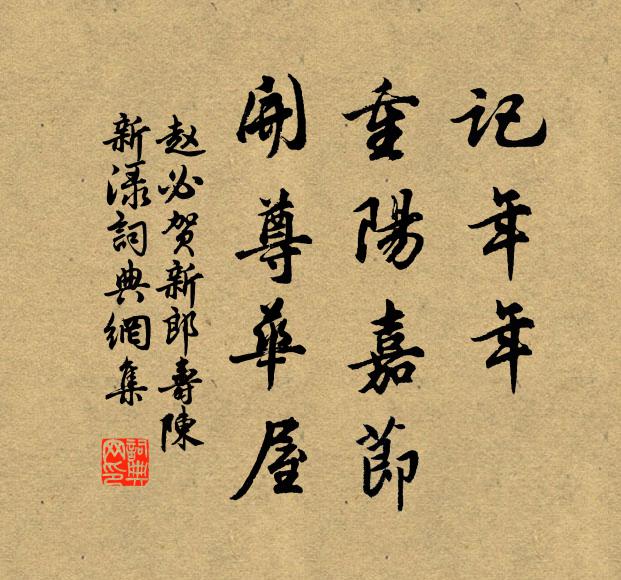 記年年
重陽嘉節
開尊華屋
赵必贺新郎壽陳
新渌詞典網集
詞典
网印